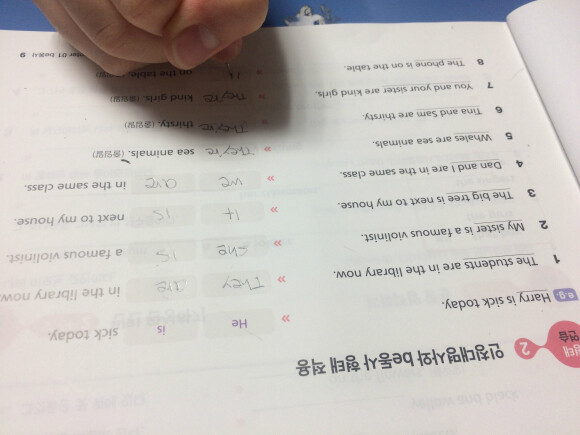 형태 연습 2 인칭대명사와 be동사 형태 적용
e.g. Harry is sick today. » He is sick today.
1 The students are in the library now. » They are in the library now.
2 My sister is a famous violinist. » She is a famous violinist.
3 The big tree is next to my house. » It is next to my house.
4 Dan and I are in the same class. » we are in the same class.
5 Whales are sea animals. » They're sea animals. (줄임말)
6 Tina and Sam are thirsty. » They're thirsty. (줄임말)
7 You and your sister are kind girls. » They're kind girls. (줄임말)
8 The phone is on the table. » It on the table.
01 be동사 9